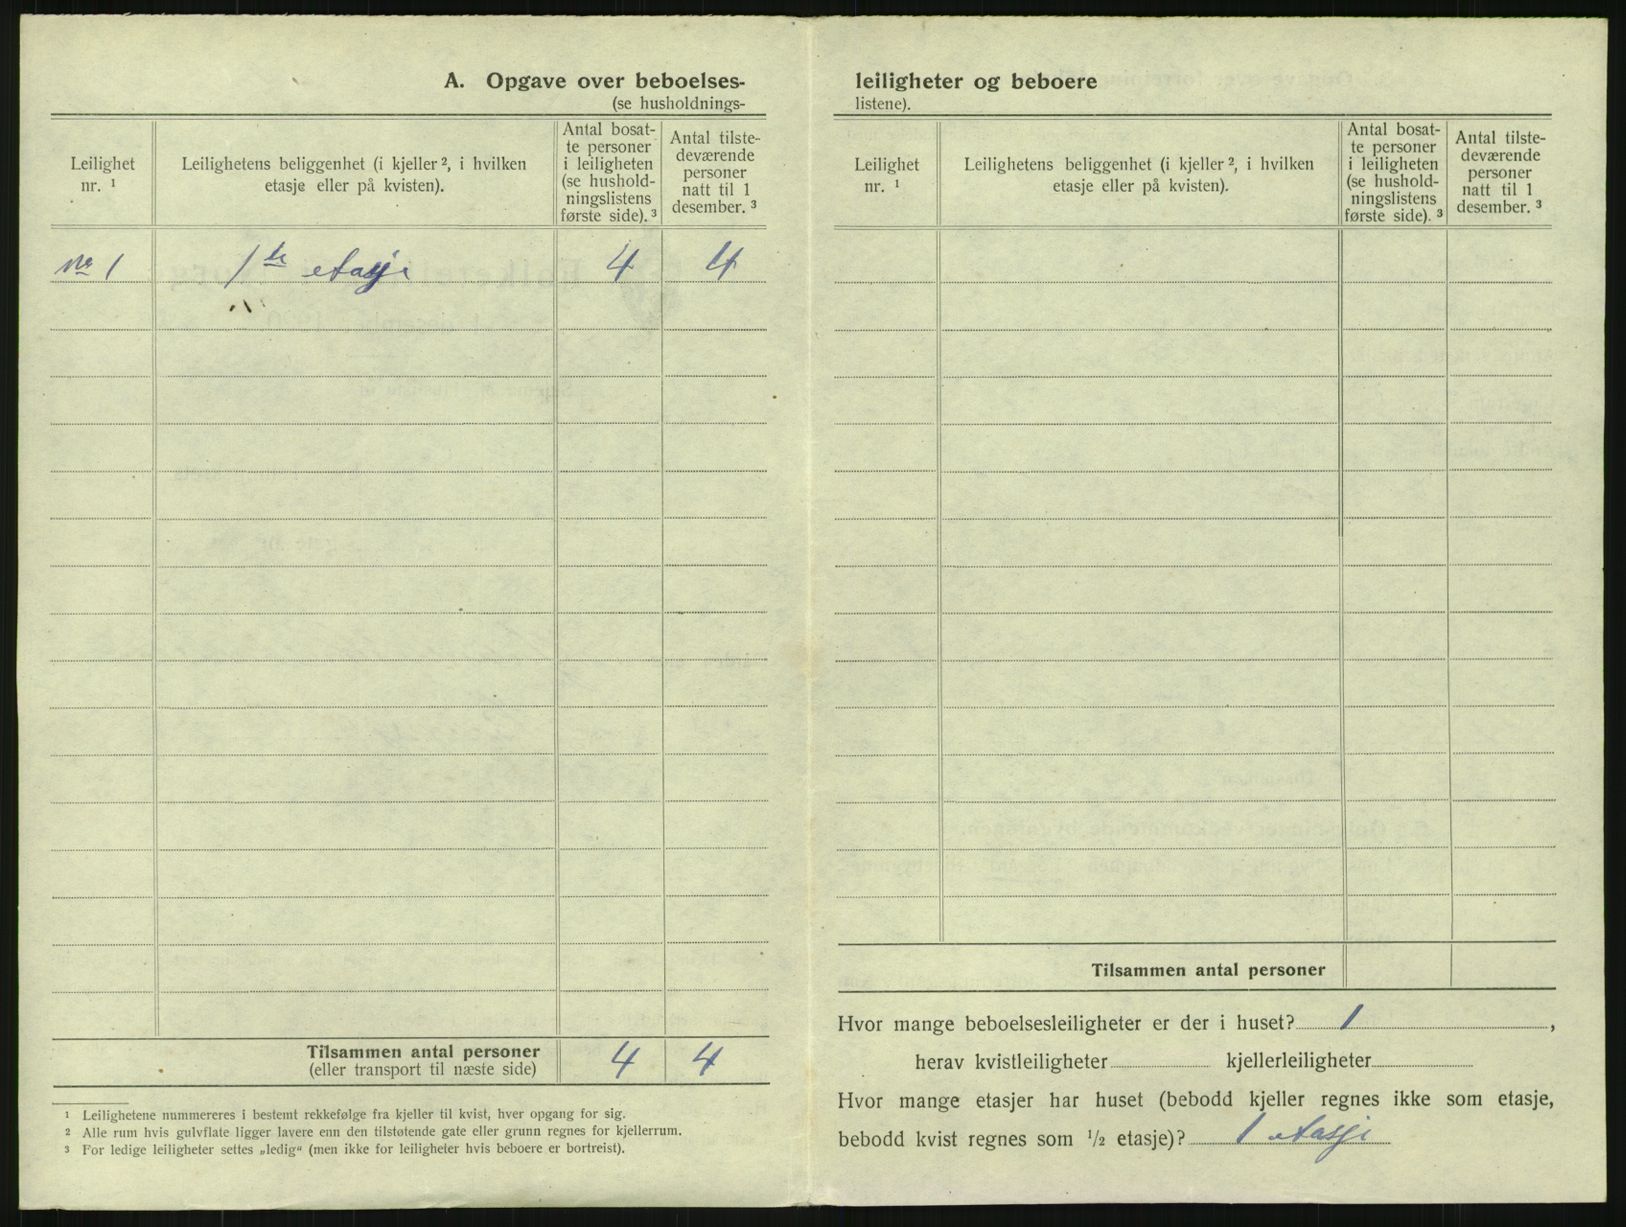 A. Opgave over beboelses-
(se husholdnings-
Leilighet nr. ¹
Leilighetens beliggenhet (i kjeller ², i hvilken
etasje eller på kvisten).
Antal bosat-
te personer
i leiligheten
(se hushold-
ningslistens
første side). ³
Antal tilste-
deværende
personer
natt til 1
desember. ³
No 1 1ste etasje 4 4
Tilsammen antal personer 4 4
(eller transport til næste side)
¹ Leilighetene nummereres i bestemt rekkefølge fra kjeller til kvist, hver opgang for sig.
² Alle rum hvis gulvflate ligger lavere enn den tilstøtende gate eller grunn regnes for kjellerrum.
³ For ledige leiligheter settes „ledig“ (men ikke for leiligheter hvis beboere er bortreist).
leiligheter og beboere
listene).
Leilighet nr. ¹
Leilighetens beliggenhet (i kjeller ², i hvilken
etasje eller på kvisten).
Antal bosat-
te personer
i leiligheten
(se hushold-
ningslistens
første side). ³
Antal tilste-
deværende
personer
natt til 1
desember. ³
Tilsammen antal personer
Hvor mange beboelsesleiligheter er der i huset? 1 ,
herav kvistleiligheter kjellerleiligheter
Hvor mange etasjer har huset (bebodd kjeller regnes ikke som etasje,
bebodd kvist regnes som ½ etasje)? 1 etasje